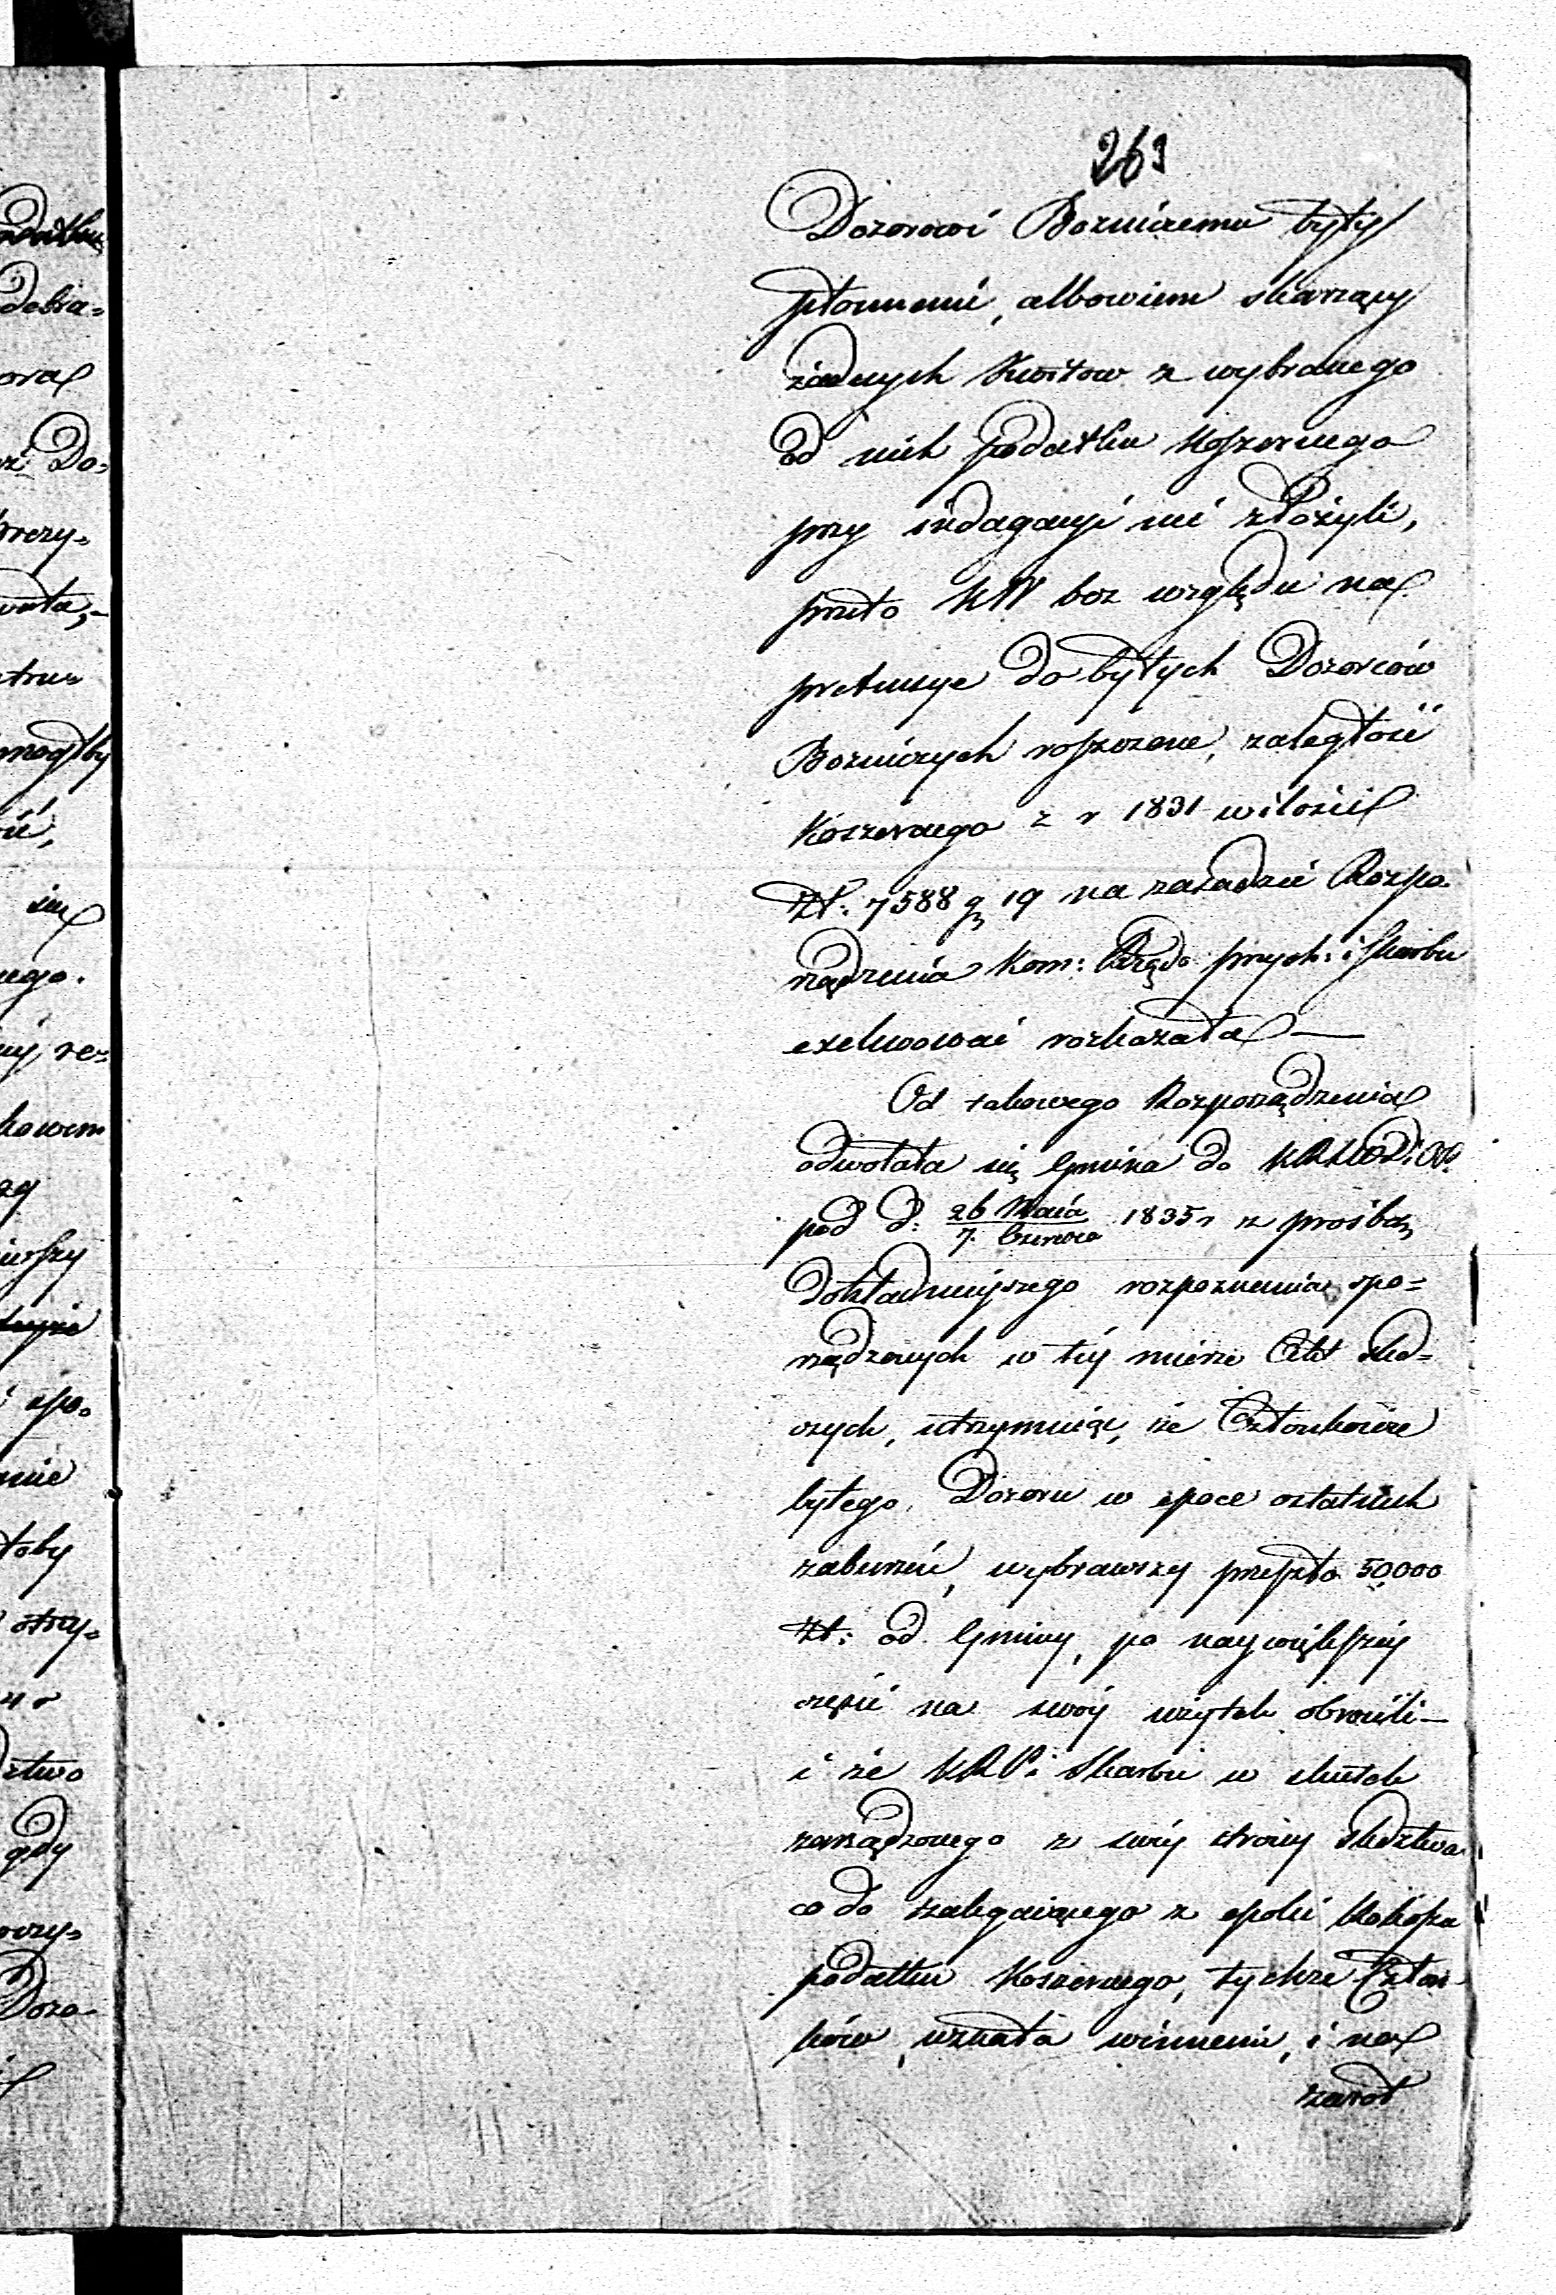 263
Dozorowi Bozniczemu były
płonnemi, albowiem skarzący
żadnych Kwitow z wybranego
od nich podatku Koszernego
przy indagacyi nie złożyli,
przeto KW bez względu na
pretensye do byłych Dozorców
Bozniczych roszczone, zaległość
Koszernego z r 1831 w ilości
Zł: 7588 g 19 na zasadzie Rozpo-
rządzenia Kom: Rządo: przych: i Skarbu
exekwować rozkazała —
Od takowego Rozporządzenia
odwołała się Gmina do
pod d: 26 Maia / 7. Czerwca 1835 r z prośbą
dokładnieyszego rozpoznania spo=
rządzonych w tey mierze Akt śled=
czych, utrzymuiąc, że Członkowie
byłego Dozoru w epoce ostatnich
zaburzeń, wybrawszy przeszło 50,000
Zł: od Gminy, po naywiększey
części na swóy użytek obrócili —
i że KRP i Skarbu w skutek
zarządzonego z swey strony śledztwa
co do zalegaiącego z epoki
podatku Koszernego, tychże Człon-
ków uznała winnemi, i na
zarot